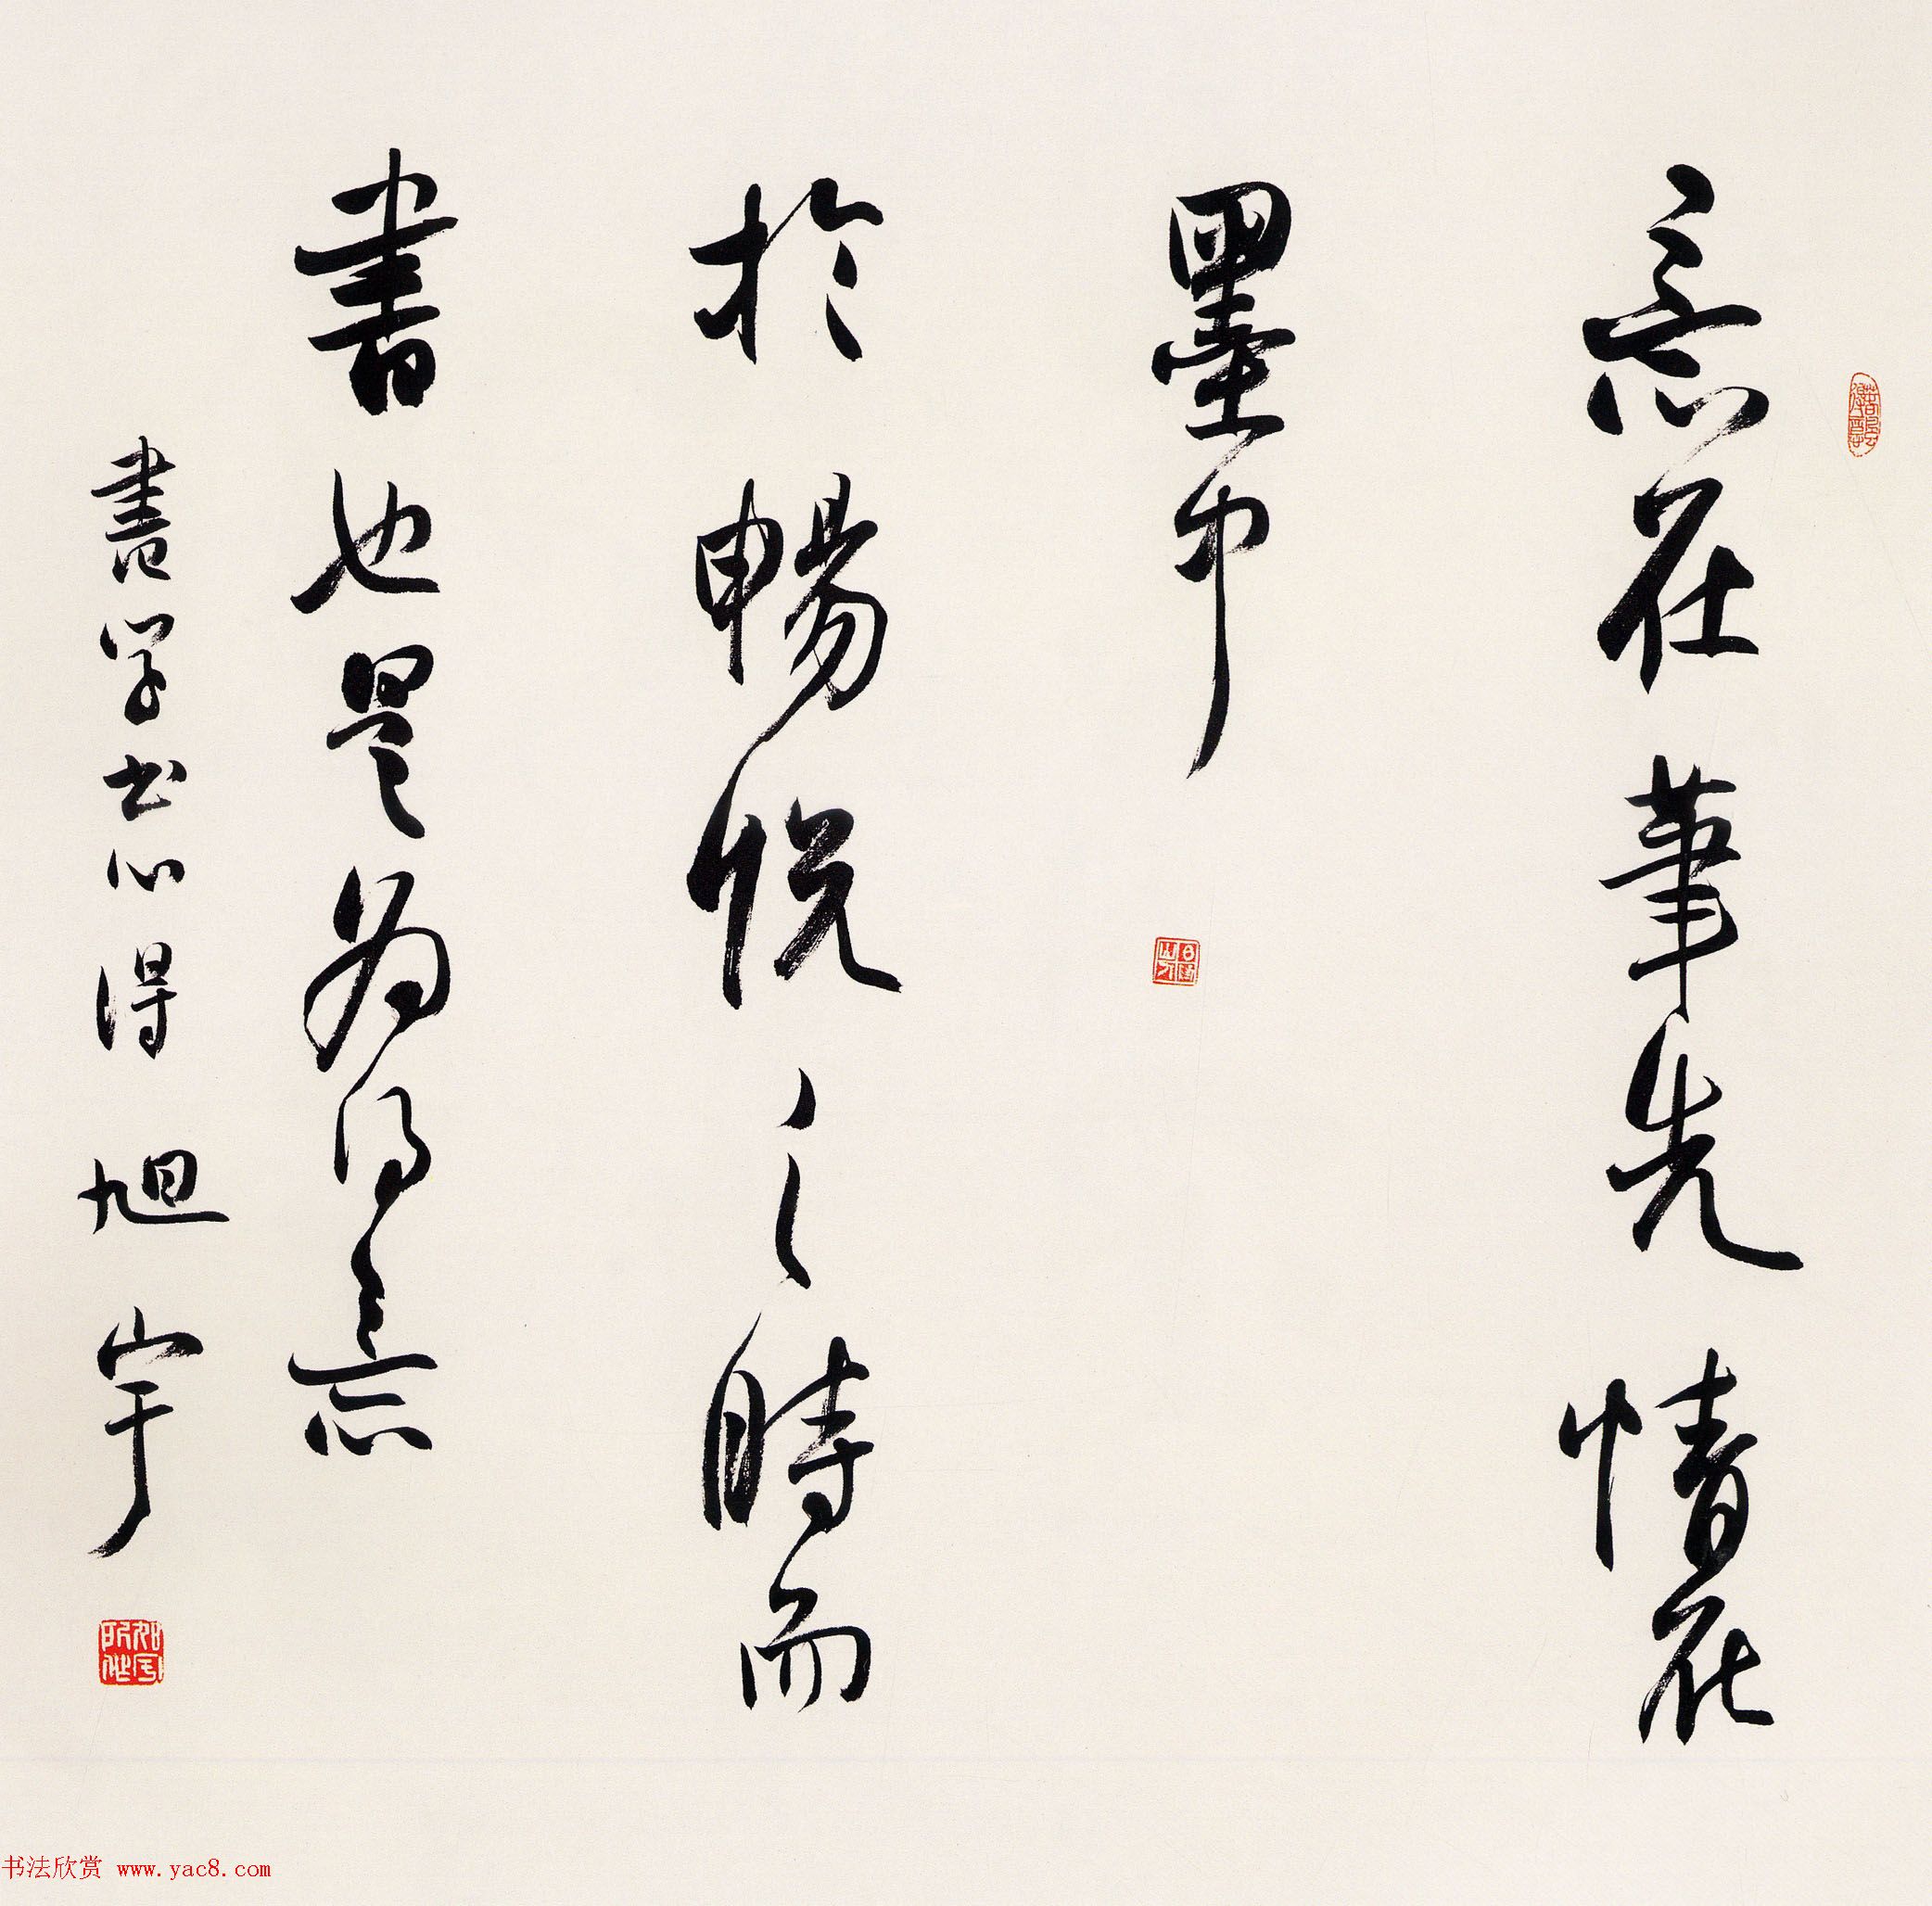 意在筆先情在
墨中
於暢悦之時而
書也是為得意
書學書心得 旭宇
书法欣赏 www.yac8.com